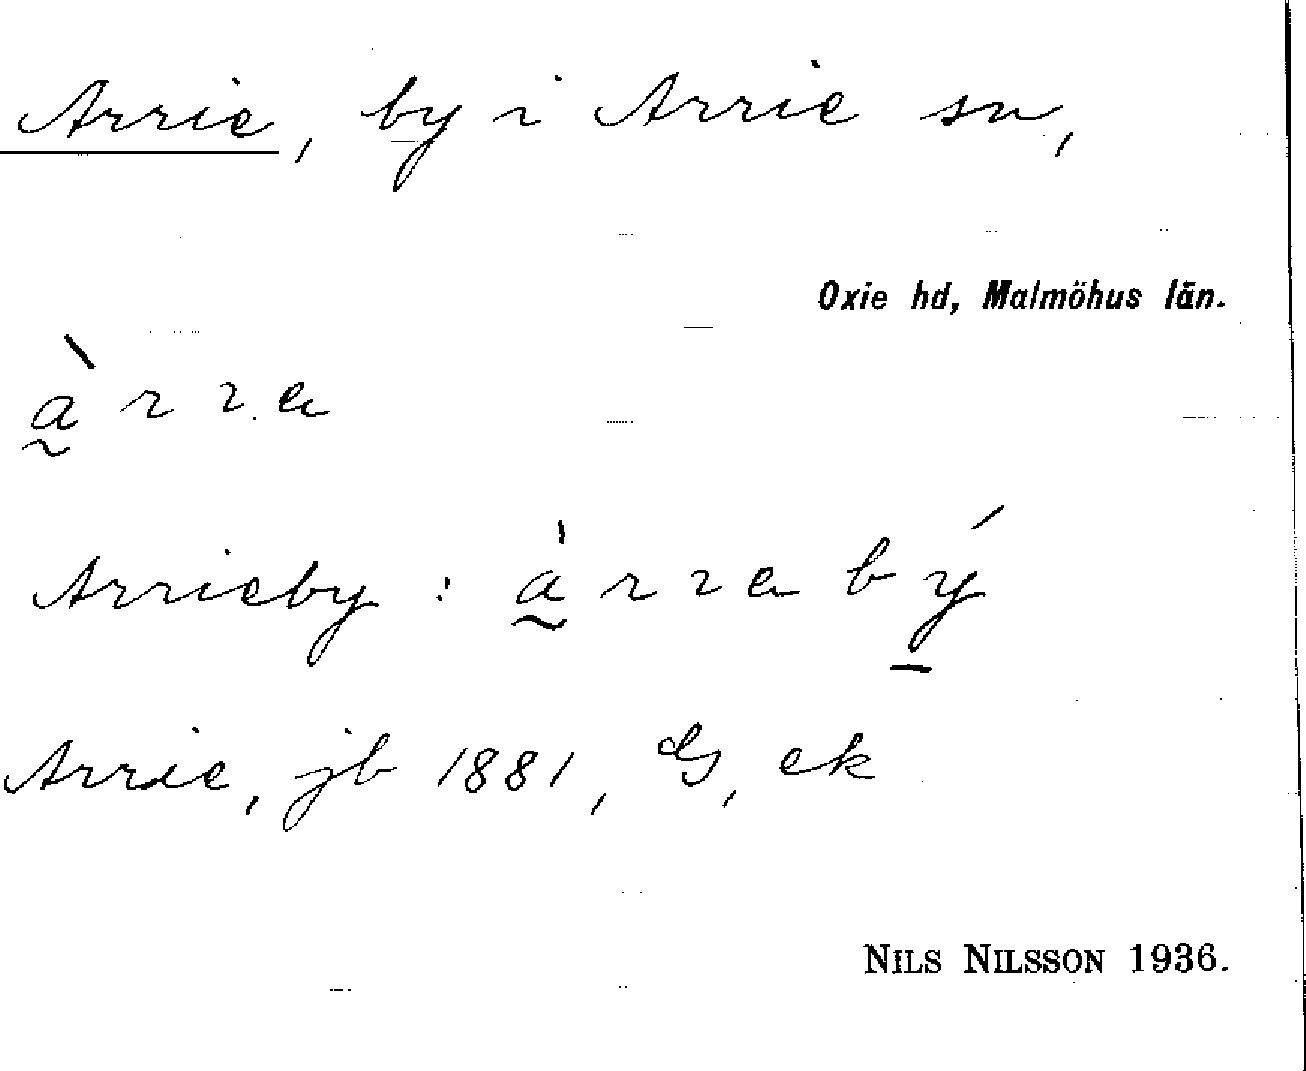 Arrie, by i Arrie sn,
Oxie hd, Malmöhus län.
à̰ r r e
Arrieby : à̰ r r e b ý̱
Arrie, jb 1881, G, ek
NILS NILSSON 1936.